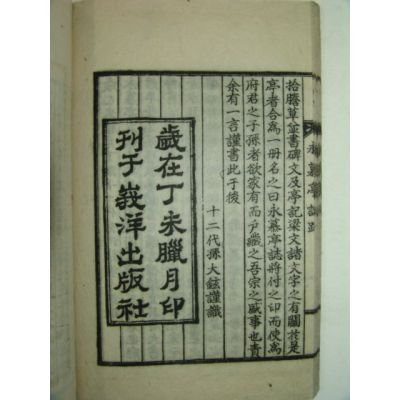 拾謄草並書碑文及亭記梁文諸文字之有關於是
亭者合爲一冊名之曰永慕亭誌將付之印而使爲
府君之子孫者欲家有而戶藏之吾宗之盛事也責
余有一言謹書此于後
十二代孫大鉉謹識
歲在丁未臘月印
刊于義洋出版社